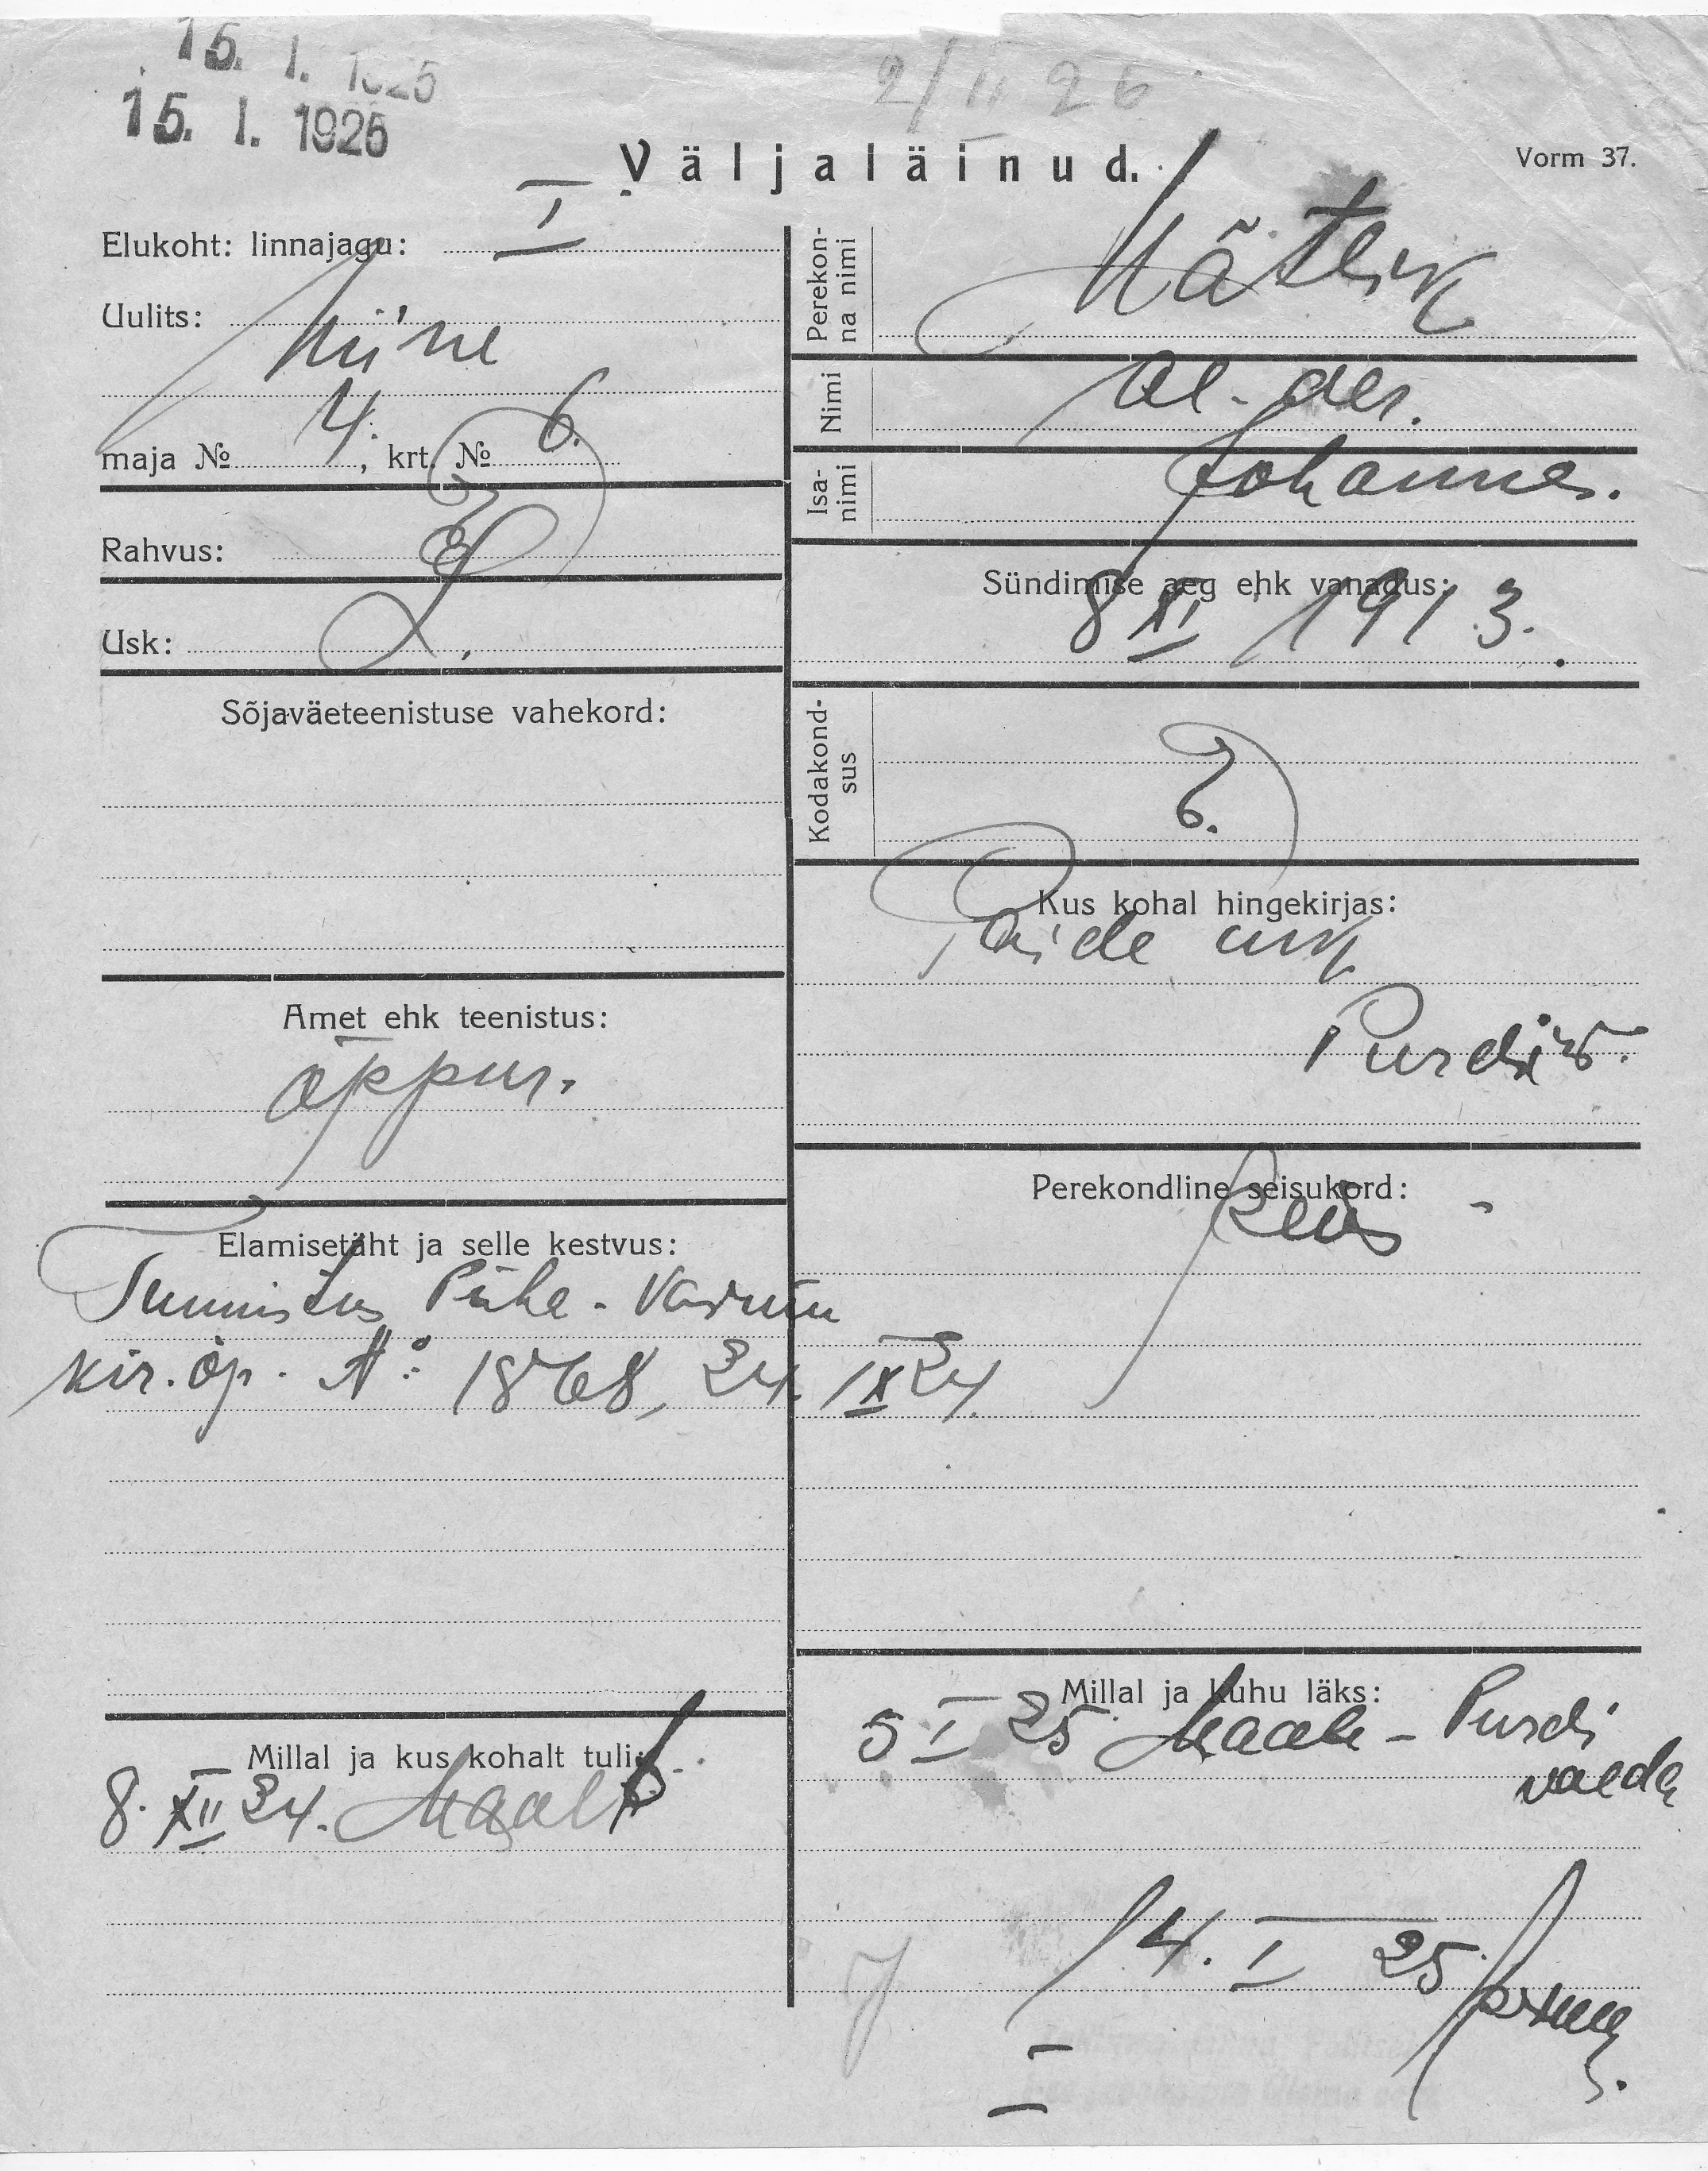 15. I. 1925
15. I. 1925
2/II 26
Väljaläinud.
Vorm 37.
Elukoht: linnajagu: I
Uulits:
Niine
maja № 4. , krt. № 6.
Rahvus: E
Usk: L.
Sõjaväeteenistuse vahekord:
Amet ehk teenistus:
õppur.
Elamisetäht ja selle kestvus:
Tunnistus Püha-Vaimu
kir. õp. №: 1868, 24. IX 24.
Millal ja kus kohalt tuli:
8. XII 24. Maalt
Perekon-
na nimi
Mätlik
Nimi
Al-der.
Isa-
nimi
Johannes.
Sündimise aeg ehk vanadus:
8 XI 1913.
Kodakond-
sus
E.
Kus kohal hingekirjas:
Paide
Purdi v.
Perekondline seisukord:
Millal ja kuhu läks:
5 I 25 Maale - Purdi
valda
14. I 25